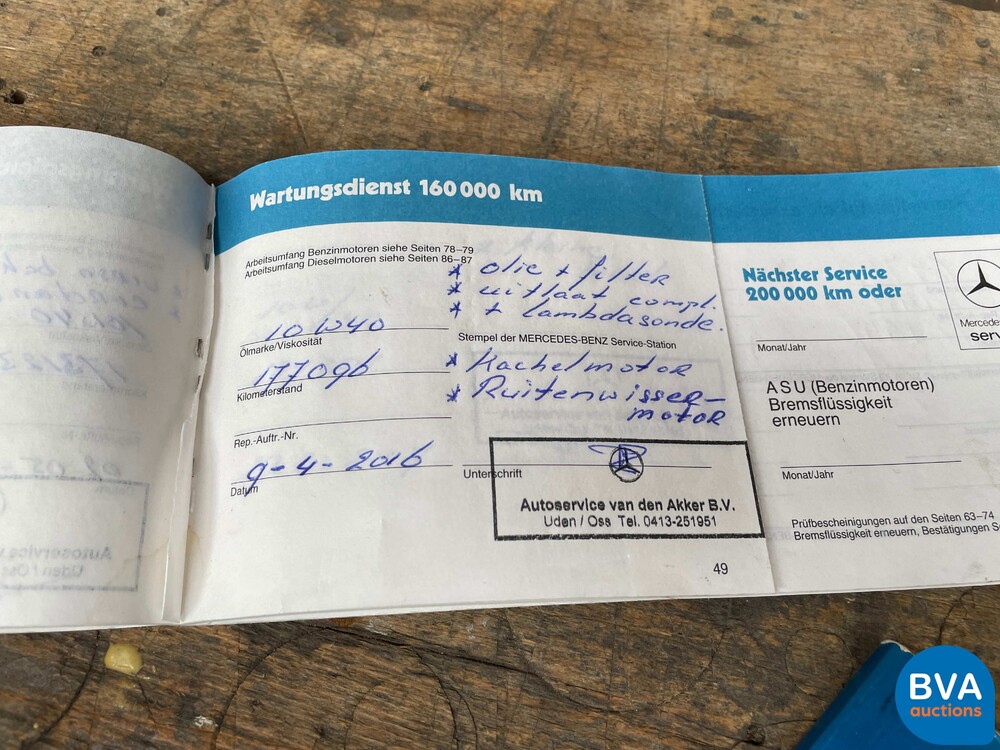 Wartungsdienst 160 000 km
Arbeitsumfang Benzinmotoren siehe Seiten 78–79
Arbeitsumfang Dieselmotoren siehe Seiten 86–87
* olie + filter
* uitlaat compl.
* + lambdasonde.
10W40
Ölmarke/Viskosität
Stempel der MERCEDES-BENZ Service-Station
* Kachelmotor
177096
Kilometerstand
* Ruitenwisser-
motor
Rep.-Auftr.-Nr.
9-4-2016
Datum
Unterschrift
Autoservice van den Akker B.V.
Uden / Oss Tel. 0413-251951
49
Nächster Service
200 000 km oder
Mercedes
serv
Monat/Jahr
A S U (Benzinmotoren)
Bremsflüssigkeit
erneuern
Monat/Jahr
Prüfbescheinigungen auf den Seiten 63–74
Bremsflüssigkeit erneuern, Bestätigungen S
BVA
auctions